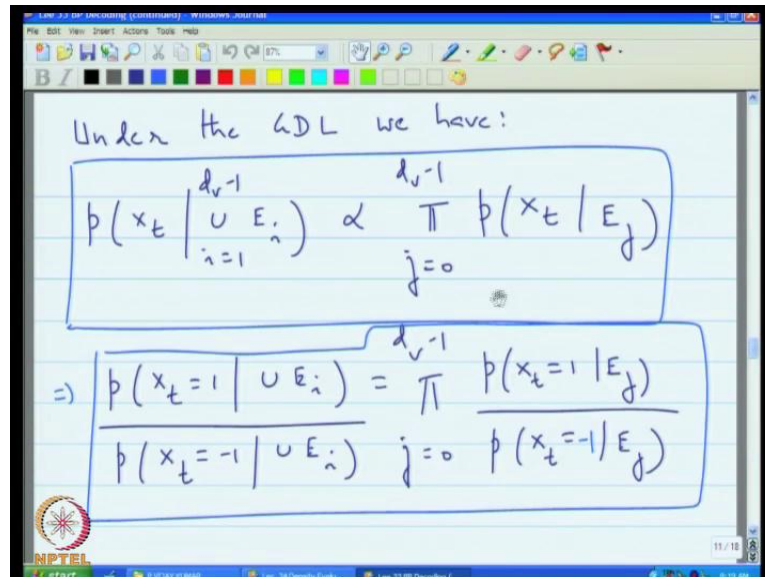 Lec 33 BP Decoding (continued) - Windows Journal
File Edit View Insert Actions Tools Help
87%
B I
Under the GDL we have:
p(x_t | ∪_{i=1}^{d_v-1} E_i) ∝ ∏_{j=0}^{d_v-1} p(x_t | E_j)
=> p(x_t=1 | ∪ E_i) / p(x_t=-1 | ∪ E_i) = ∏_{j=0}^{d_v-1} p(x_t=1 | E_j) / p(x_t=-1 | E_j)
11/18
NPTEL
start